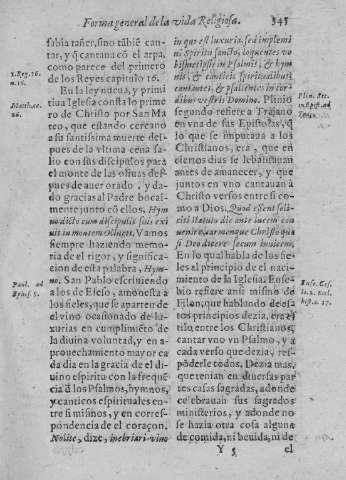 Forma general de la vida Religiosa. 345
sabia tañer, sino tãbiẽ can-
tar, y q̃ cantaua cõ el arpa,
como parece del primero
de los Reyes capitulo 16.
En la ley nueua, y primi
tiua Iglesia consta lo prime
ro de Christo por San Ma
teo, que estando cercano
a su santissima muerte des-
pues de la vltima cena sa-
lio con sus discipulos para
el monte de las oliuas des-
pues de auer orado, y da-
do gracias al Padre bocal-
mente junto cõ ellos. Hym
no dicto cum discipulis suis exi
uit in montem Oliueti. Vamos
siempre haziendo memo-
ria del rigor, y significa-
cion de esta palabra, Hym-
no. San Pablo escriuiendo
a los de Efeso, amonesta a
los fieles, que se aparten de
el vino ocasionado de lu-
xurias en cumplimiẽto de
la diuina voluntad, y en a-
prouechamiento mayor ca
da dia en la gracia de el di-
uino espiritu con la freque̅
cia d̃ los Psalmos, hymnos,
y canticos espirituales en-
tre si mismos, y en corres-
pondencia de el coraçon.
Nolite, dize, inebriari vino
1. Reg. 16.
n. 16.
Matth. ca.
26.
Paul. ad
Ephes. 5.
in quo est luxuria, sed implemi
ni Spiritu sancto, loquentes vo
bismetipsis in Psalmis, & hym
nis, & canticis spiritualibus,
cantantes, & psallentes in cor-
dibus vestris Domino. Plinio
segundo refiere a Trajano
en vna de sus Epistolas, q̃
lo que se imputaua a los
Christianos, era, que en
ciertos dias se lebantauan
antes de amanecer, y que
juntos en vno cantauan à
Christo versos entre si co-
mo a Dios. Quod essent soli-
citi statuto die ante lucem con
uenire, carmenque Christo qua
si Deo dicere secum inuicem.
En lo qual habla de los fie-
les al principio de el naci-
miento de la Iglesia: Euse-
bio refiere ansi mismo de
Filon, que hablando de es-
tos principios dezia, era es-
tilo, entre los Christianos,
cantar vno vn Psalmo, y a
cada verso que dezia, res-
põderle todos. Dezia mas,
que tenian en diuersas par
tes casas sagradas, adonde
celebrauan sus sagrados
ministerios, y adonde no
se hazia otra cosa alguna
de comida, ni beuida, ni de
Plin. Sec.
in Epist. ad
Euse. Ces.
li. 2. Eccl.
hist. c. 17.
Y 5 el